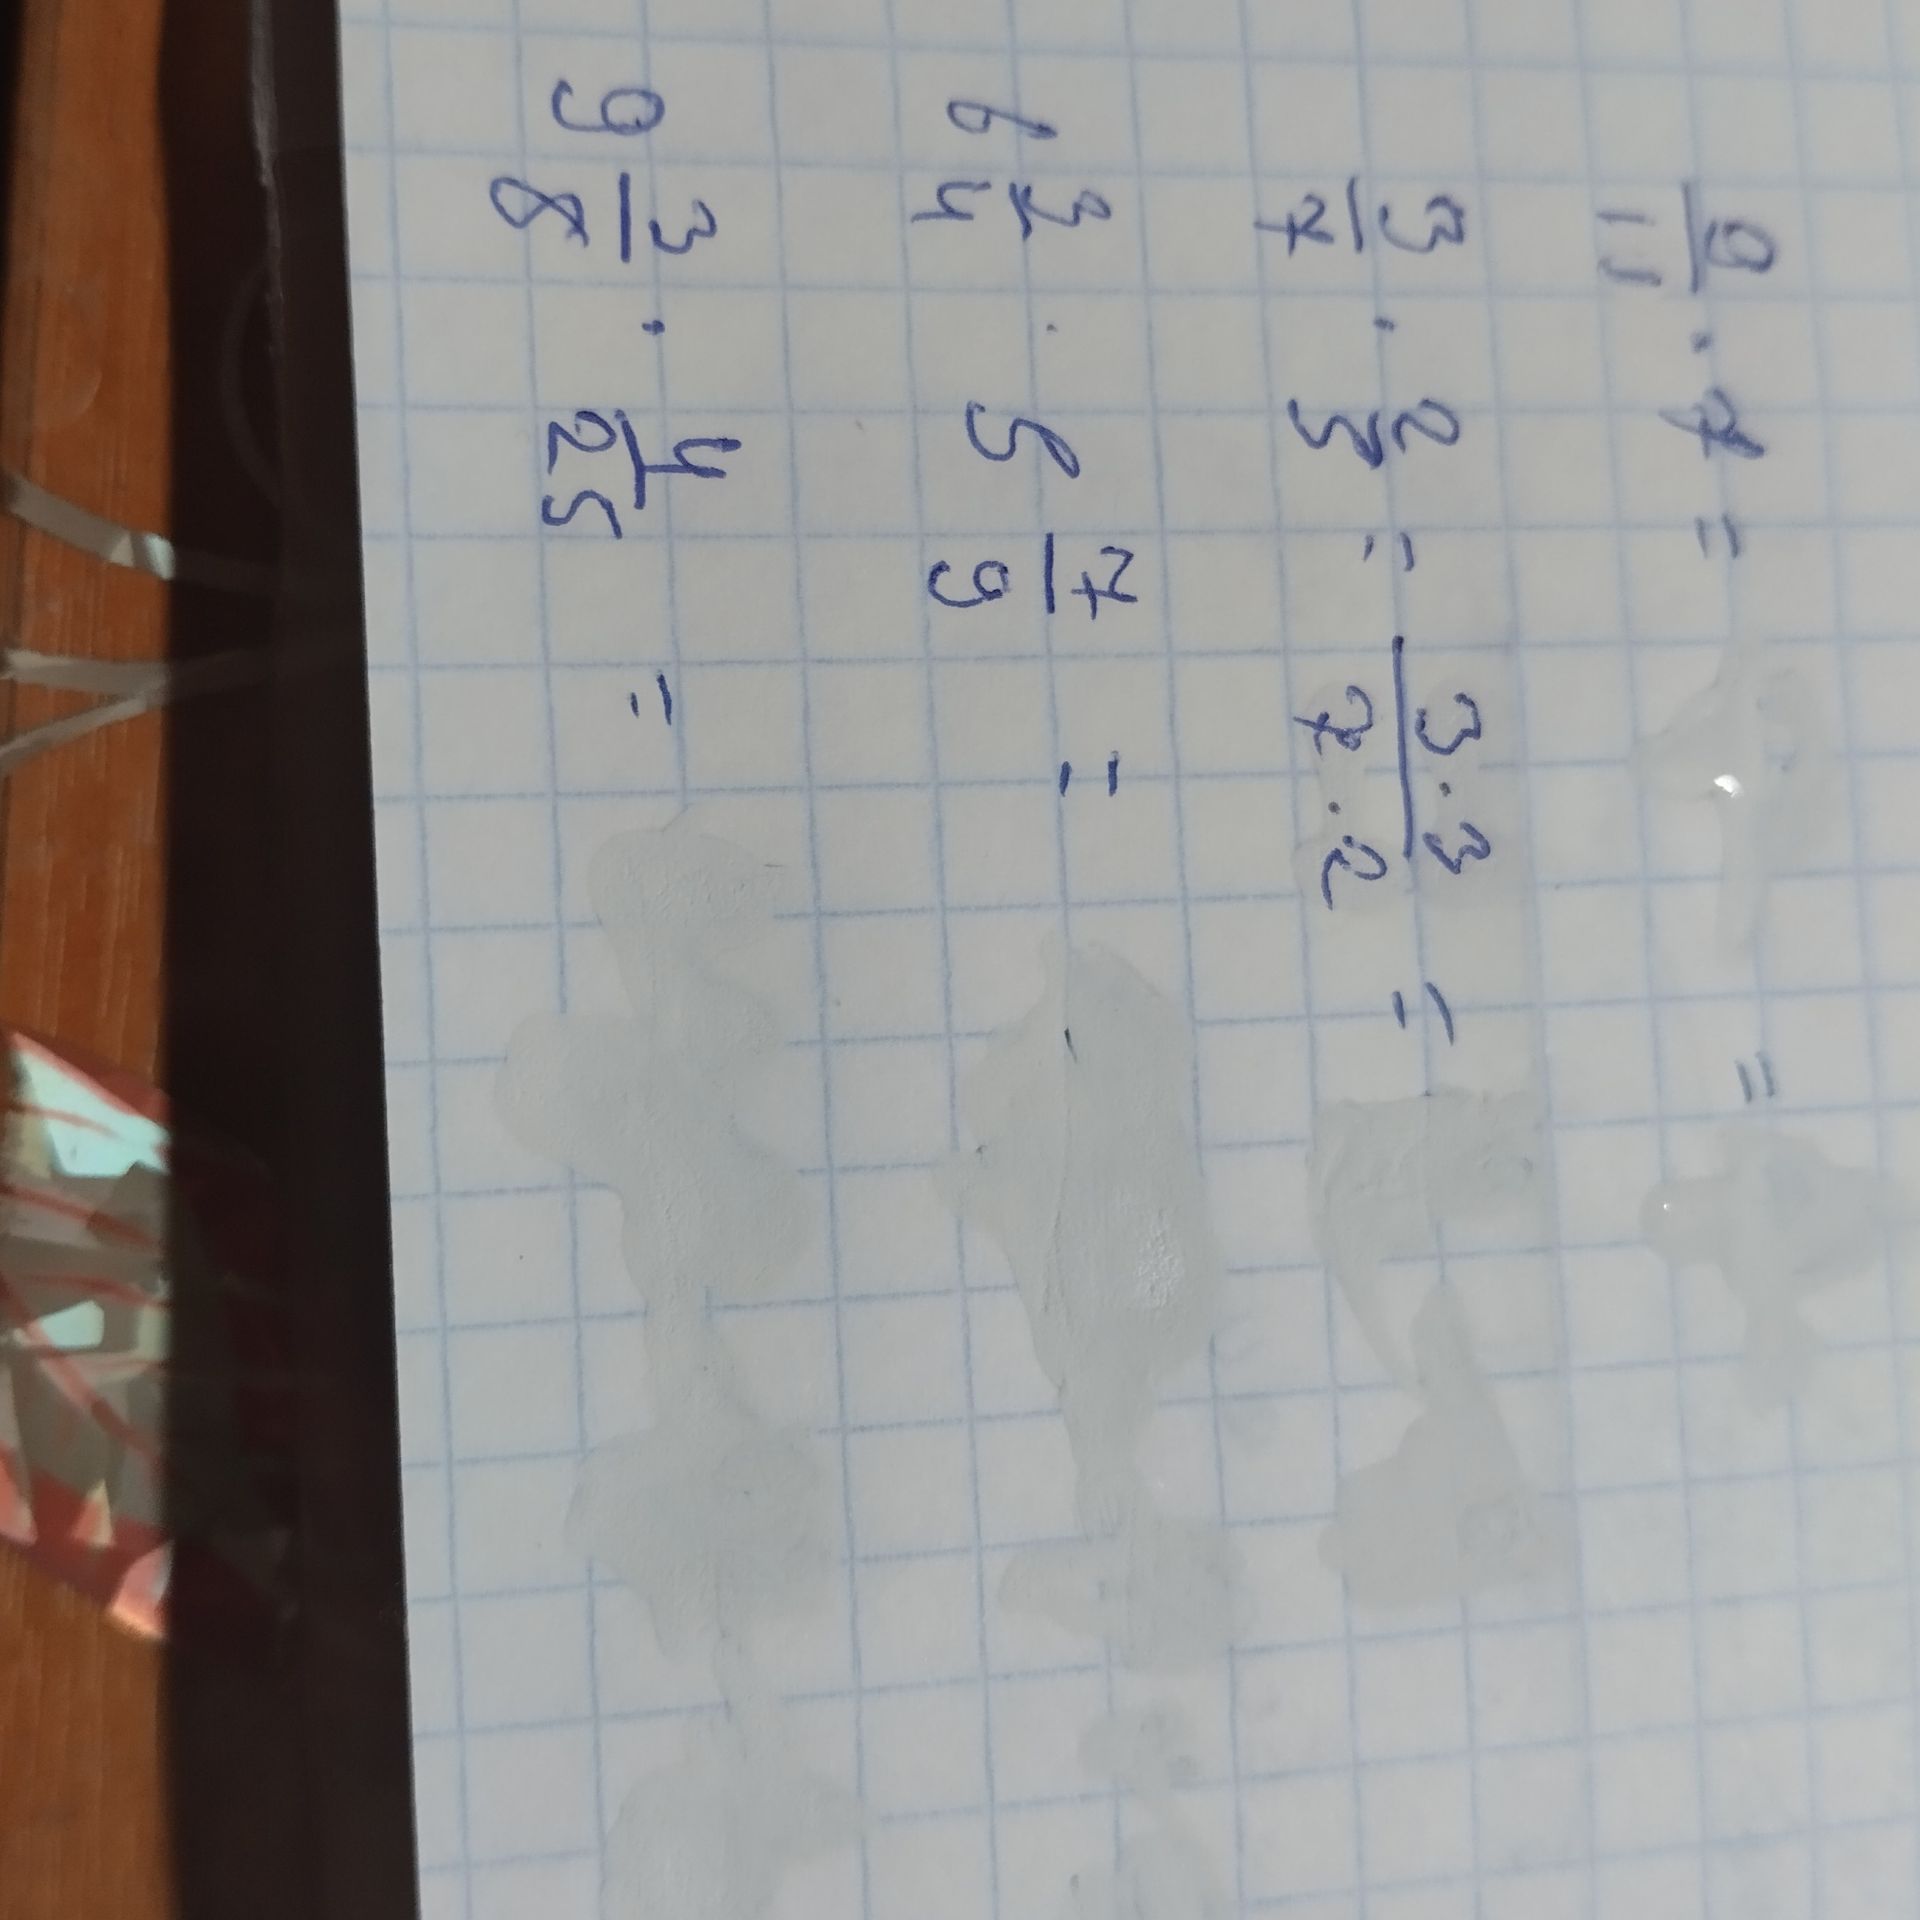 9/11 · 7 = =
3/7 · 2/5 = 3·3/7·2 =
6 3/4 · 5 7/9 =
9 3/8 · 4/25 =